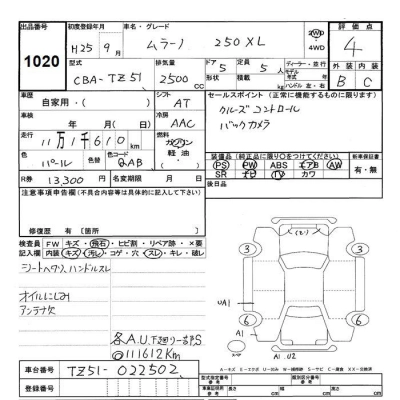 出品番号 初度登録年月 車名・グレード 評価点
1020 H25 9月 ムラーノ 250XL 2WD 4WD 4
型式 排気量 ドア 定員 ディーラー・並行 外装 内装
CBA-TZ51 2500cc 5 5人 B C
形状 積載 kg モデル年式 年 ハンドル 左・右
車歴 シフト セールスポイント(正常に機能するものに限ります)
自家用・( ) AT クルーズコントロール
車検 冷房 バックカメラ
年 月(日) AAC
走行 燃料
11万1千610km ガソリン
軽油
色 色替 色コード
パール QAB
装備品(純正品に限り○をつけてください) 新車保証書
PS PW エアB ABS AW 有・無
SR ナビ TV カワ
R券 13,300円 名変期限 年 月 日 後日品
注意事項申告欄(不具合内容等は具体的に記入して下さい)
修復歴 有〔箇所 〕
検査員記入欄 FW キズ・飛石・ヒビ割・リペア跡・×要
内装 キズ・汚レ・コゲ・穴・スレ・キレ・破レ
シートヘタリ、ハンドルスレ
オイルにじみ
アンテナ欠
各A.U.下廻り一部S
111612Km
3 3
6 6
UA1
A1
A1.U2
車台番号 TZ51-022502
登録番号
型式指定番号 類別区分番号
長さ cm 幅 cm 高さ cm